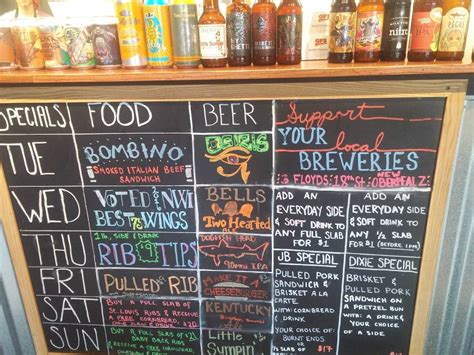 SPECIALS
FOOD
BEER
TUE
BOMBINO
SMOKED ITALIAN BEEF
SANDWICH
OSIRIS
WED
VOTED #1 NWI
BEST WINGS
BELLS
Two Hearted
THU
1 lb, SIDE & DRINK
RIB TIPS
DOGFISH HEAD
90min IPA
FRI
PULLED RIB
MAKE IT A
CHEESEBURGER
SAT
BUY A FULL SLAB OF
ST. LOUIS RIBS & RECEIVE
A FREE CORNBREAD
KENTUCKY
SUN
BUY A FULL SLAB OF
BABY BACK RIBS
& RECEIVE A FREE
Little
Sumpin'
Support
YOUR local
BREWERIES
3 FLOYDS 18th St. NEW OBERPFALZ
ADD AN
EVERYDAY SIDE
& SOFT DRINK TO
ANY FULL SLAB
FOR $1
ADD AN
EVERYDAY SIDE
& SOFT DRINK TO
ANY ½ SLAB
FOR $1 (BEFORE 1PM)
JB SPECIAL
PULLED PORK
SANDWICH &
BRISKET A LA
CARTE
WITH CORNBREAD
& DRINK
YOUR CHOICE OF:
BURNT ENDS
OR
$17
DIXIE SPECIAL
BRISKET &
PULLED PORK
SANDWICH ON
A PRETZEL BUN
WITH A DRINK &
YOUR CHOICE
OF A SIDE
nitro